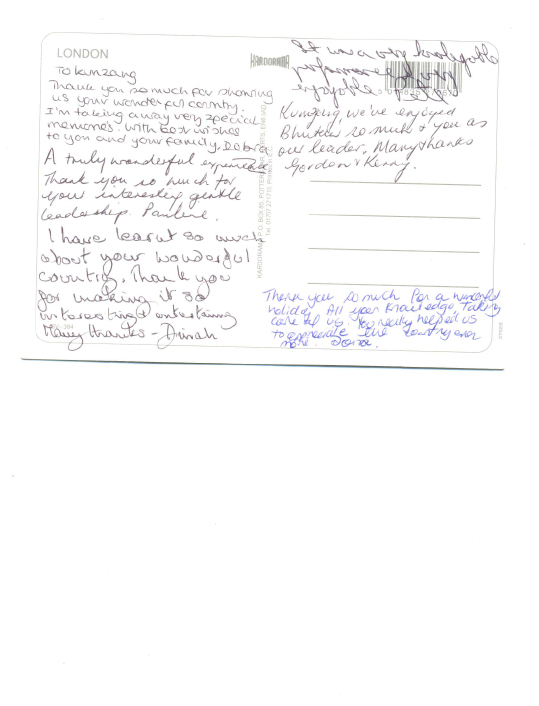 LONDON
To Kunzang
Thank you so much for showing
us your wonderful country.
I'm taking away very special
memories. With best wishes
to you and your family. Debra
A truly wonderful experience
Thank you so much for
your interesting gentle
leadership. Pauline.
I have learnt so much
about your wonderful
country. Thank you
for making it so
interesting & entertaining
Many thanks - Dinah
KARDORAMA
It was a very knowledgable
performance
enjoyable
Kunzang, we've enjoyed
Bhutan so much & you as
our leader. Many thanks
Gordon & Kenny.
Thank you so much for a wonderful
holiday. All your knowledge, taking
care of us. You really helped us
to appreciate the country even
more.